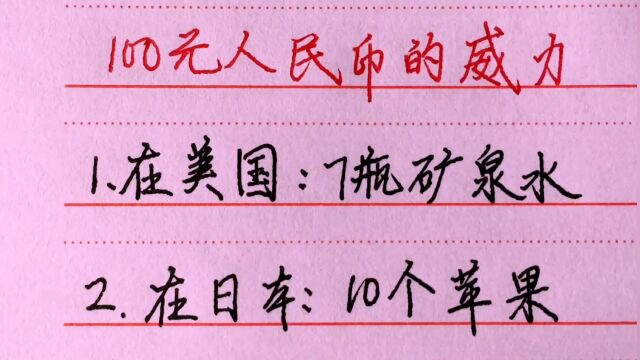 100元人民币的威力
1.在美国:7瓶矿泉水
2.在日本:10个苹果